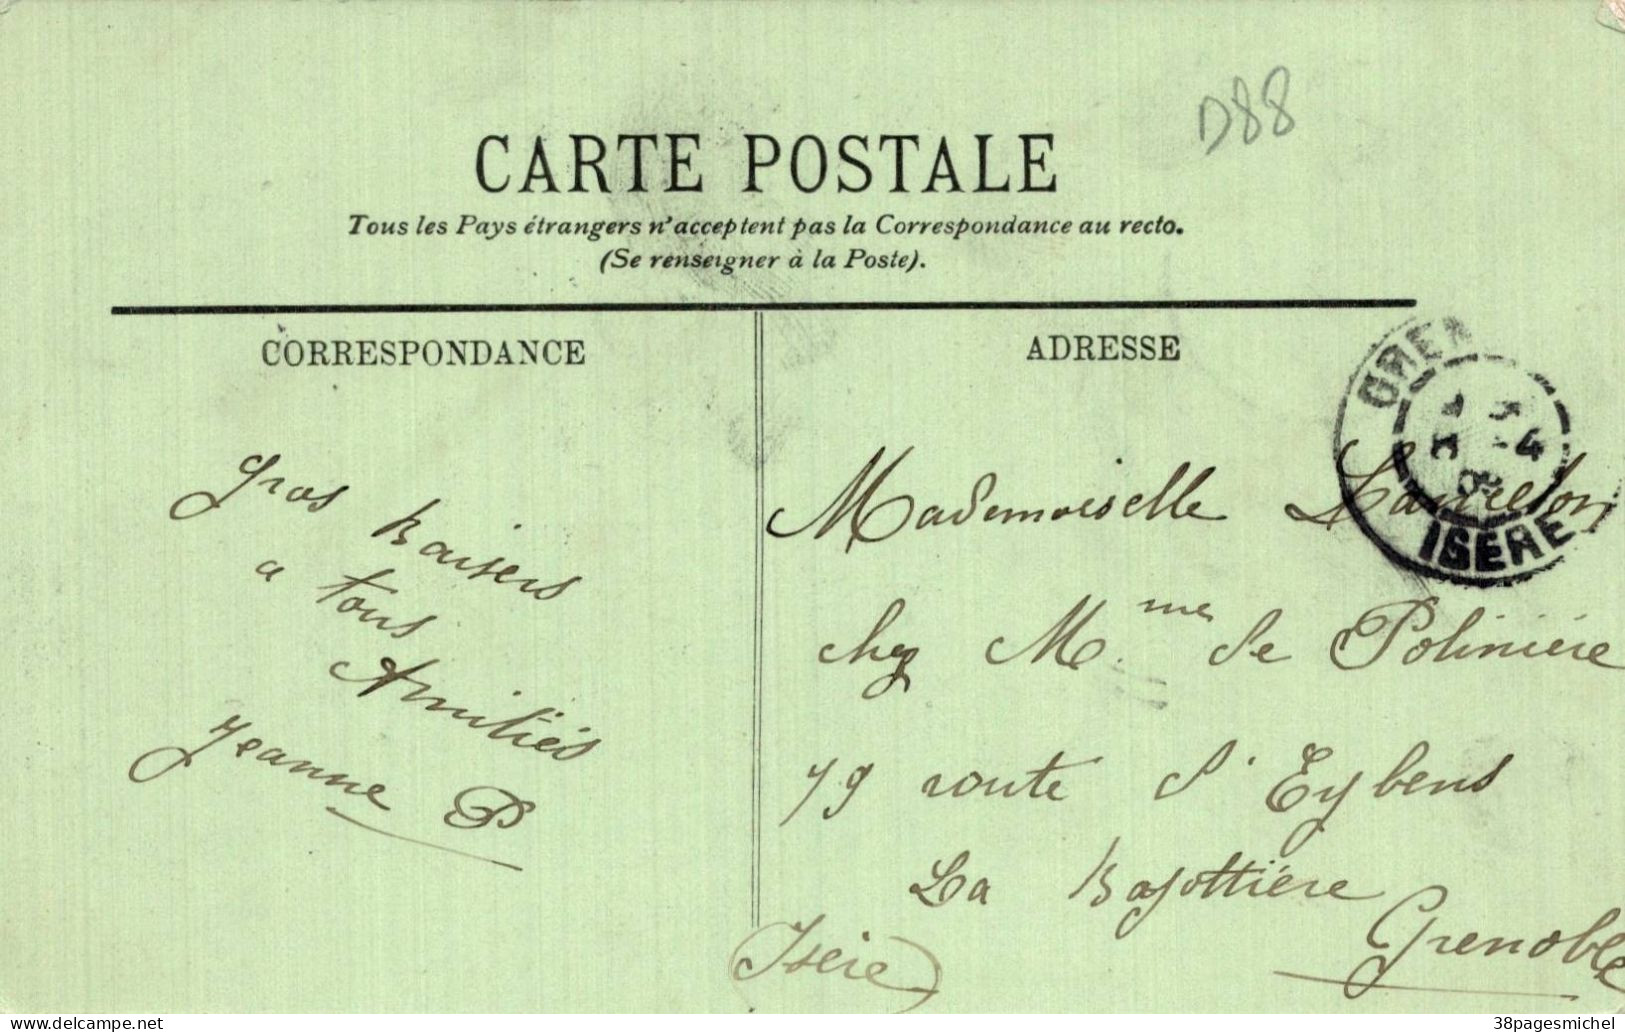 D88
CARTE POSTALE
Tous les Pays étrangers n'acceptent pas la Correspondance au recto.
(Se renseigner à la Poste).
CORRESPONDANCE
Gros baisers
a tous
Amitiés
Jeanne P
ADRESSE
Mademoiselle
chez Mme de Polinière
79 route d'Eybens
La Bajottière
Grenoble
(Isère)
GREN
4
ISÈRE
38pagesmichel